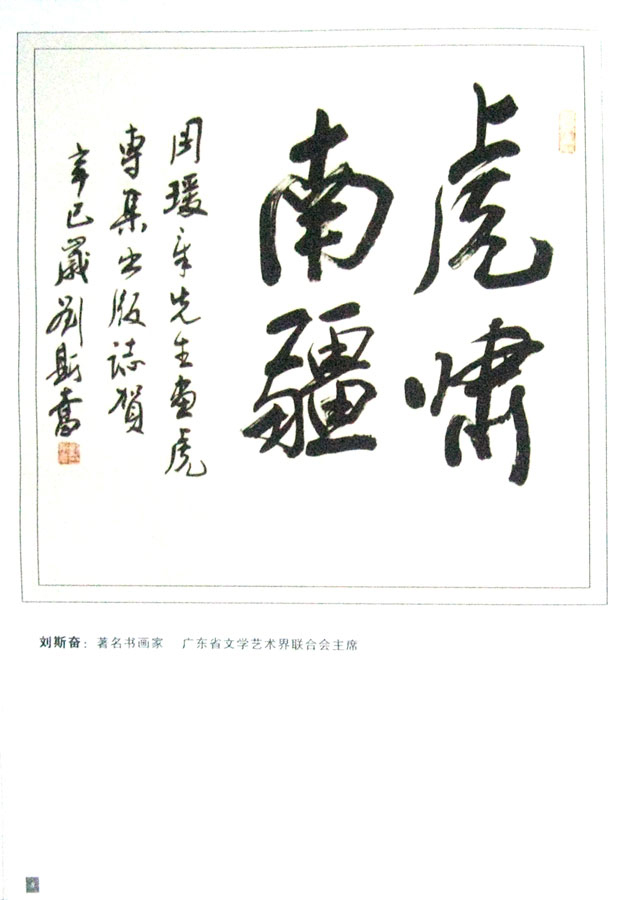 虎啸
南疆
周瑗章先生画虎
專集出版誌賀
辛巳歲刘斯奮
刘斯奋：著名书画家 广东省文学艺术界联合会主席